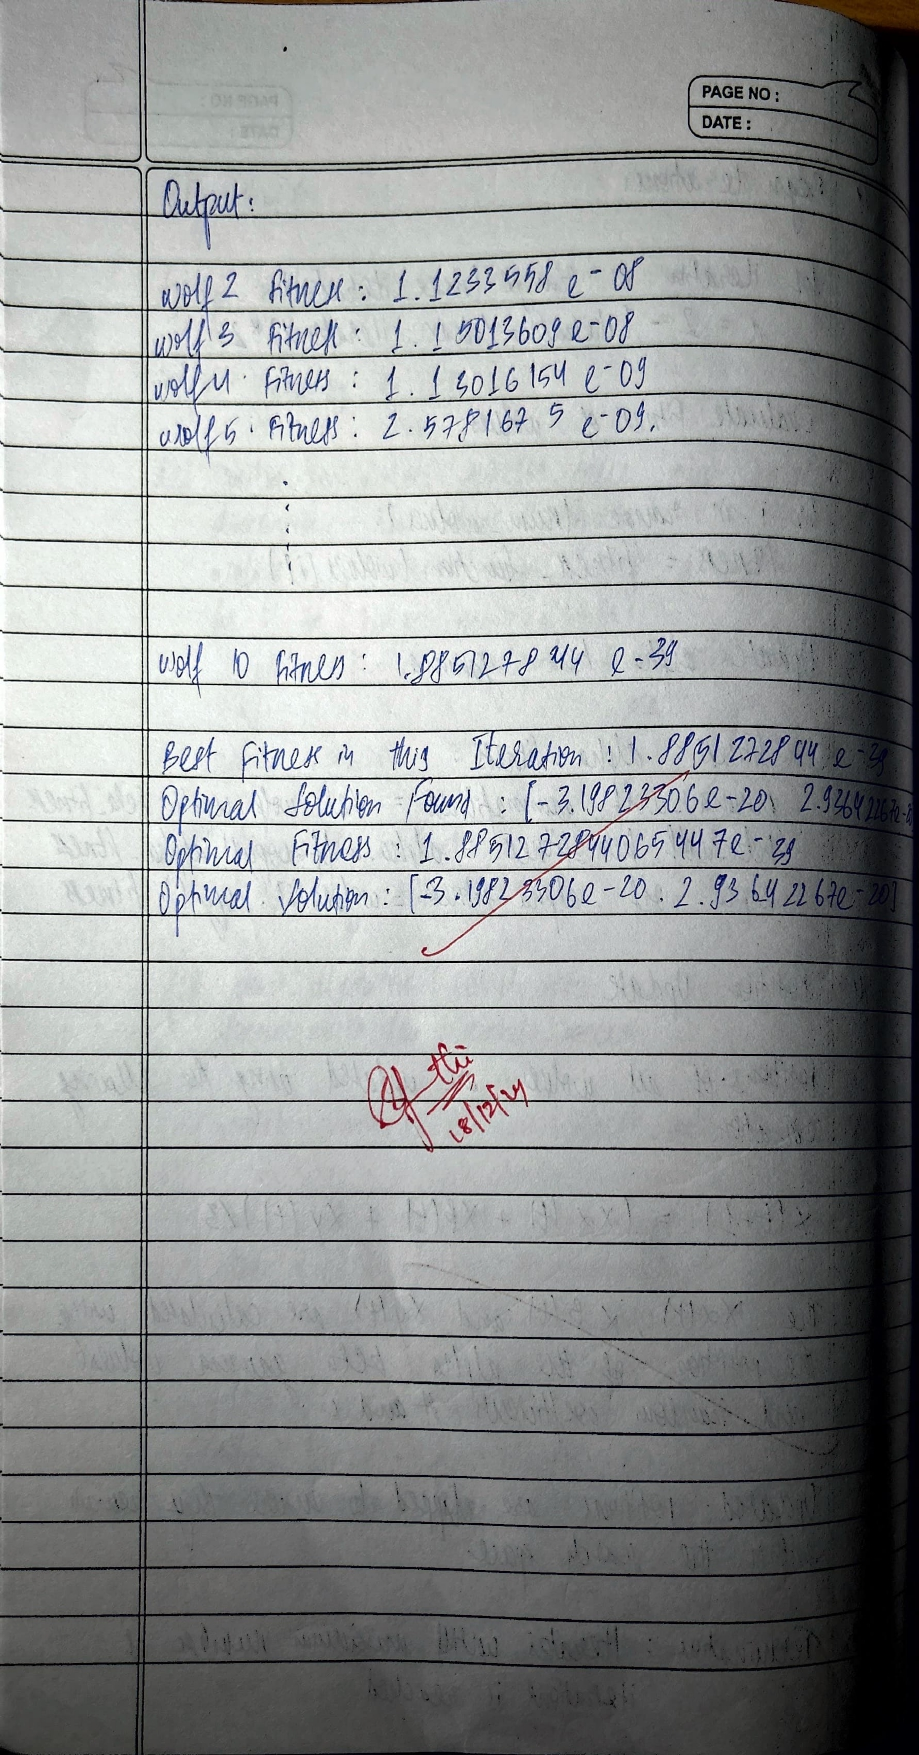 PAGE NO :
DATE :
Output:
wolf 2 fitness : 1.1233558 e-08
wolf 3 fitness : 1.15013609 e-08
wolf 4 . Fitness : 1.13016154 e-09
wolf 5 . Fitness : 2.5781675 e-09.
wolf 10 fitness : 1.885127844 e-39
Best Fitness in this Iteration : 1.8851272844 e-39
Optimal Solution Found : [-3.19823306e-20 2.93642267e-
Optimal Fitness : 1.8851272844065447e-39
Optimal Solution : [-3.19823306e-20 . 2.93642267e-20]
18/12/24